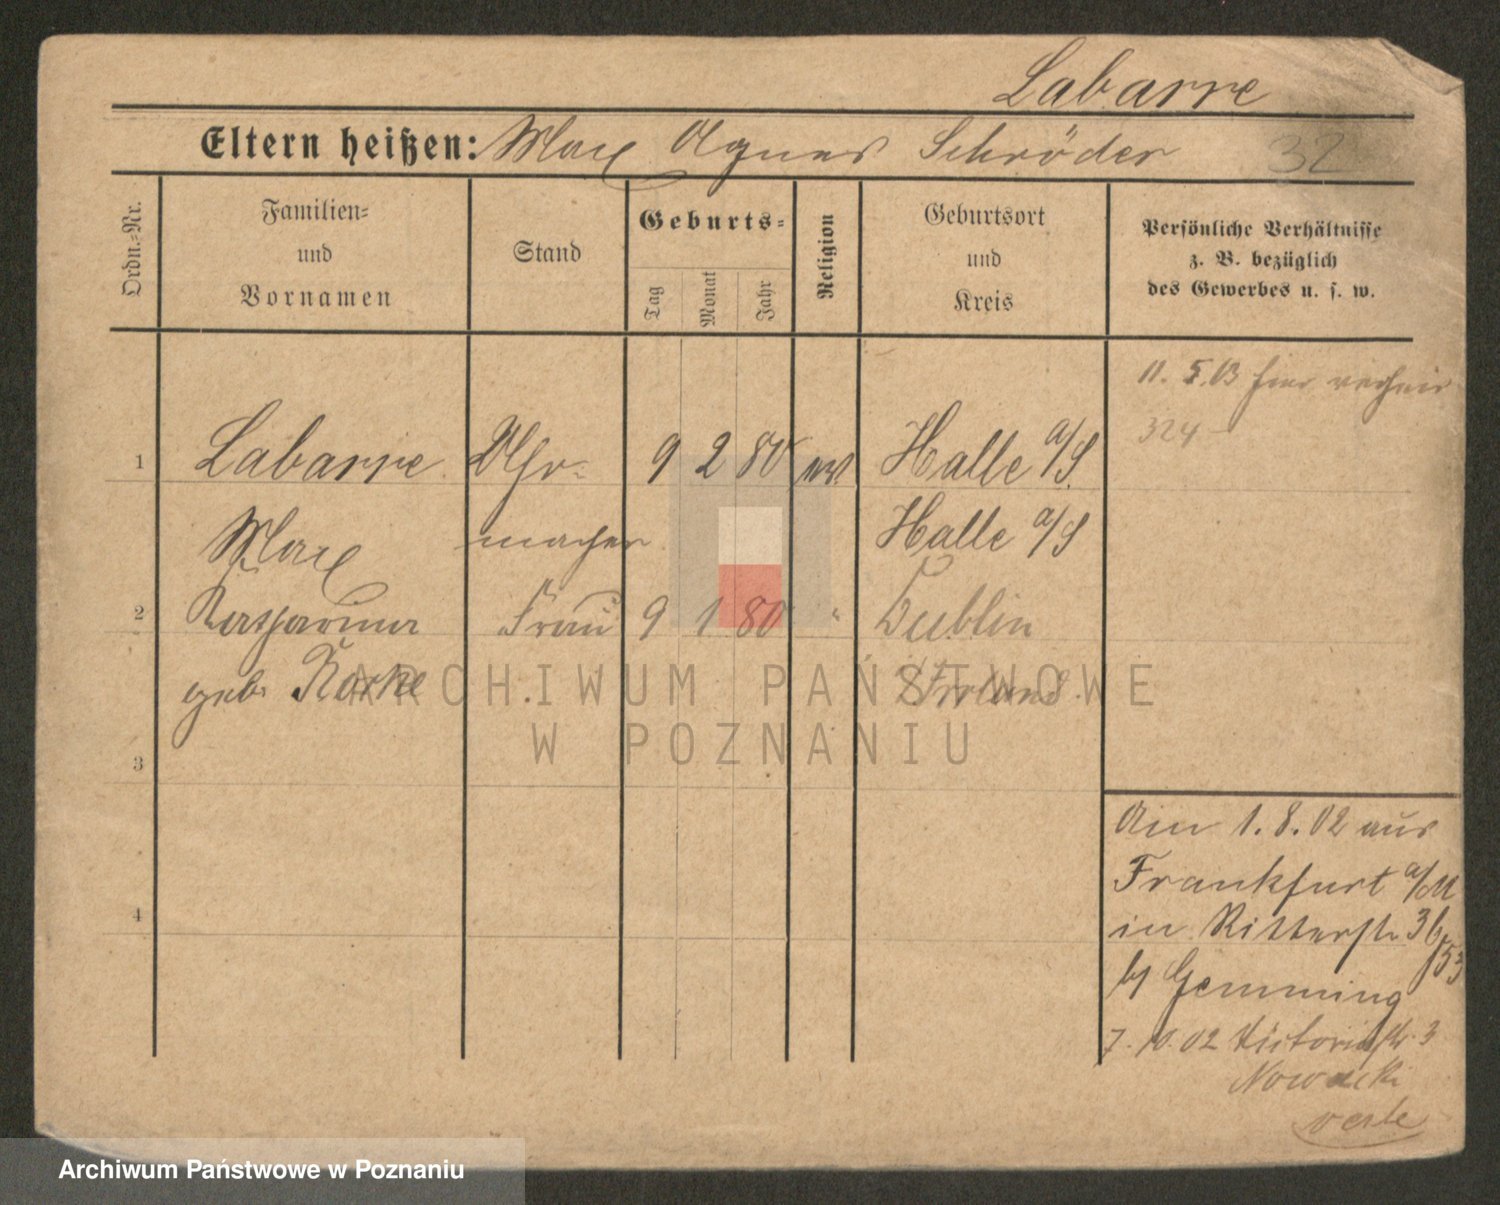 Labarre
Eltern heißen: Max Agnes Schröder 32
Ordn.=Nr.
Familien=
und
Vornamen
Stand
Geburts=
Tag
Monat
Jahr
Religion
Geburtsort
und
Kreis
Persönliche Verhältnisse
z. B. bezüglich
des Gewerbes u. s. w.
11. 5. 03 hier verheir
324
1 Labarre Uhr= 9 2 80 ev. Halle a/S.
Max macher Halle a/S
2 Katharina Frau 9 1 80 " Dublin
geb. Irland.
3
4
Am 1. 8. 02 aus
Frankfurt a/M
in Ritterstr 36
b/ Gemming
7. 10. 02 Victoriastr. 3
Nowacki
verte
ARCHIWUM PAŃSTWOWE
W POZNANIU
Archiwum Państwowe w Poznaniu